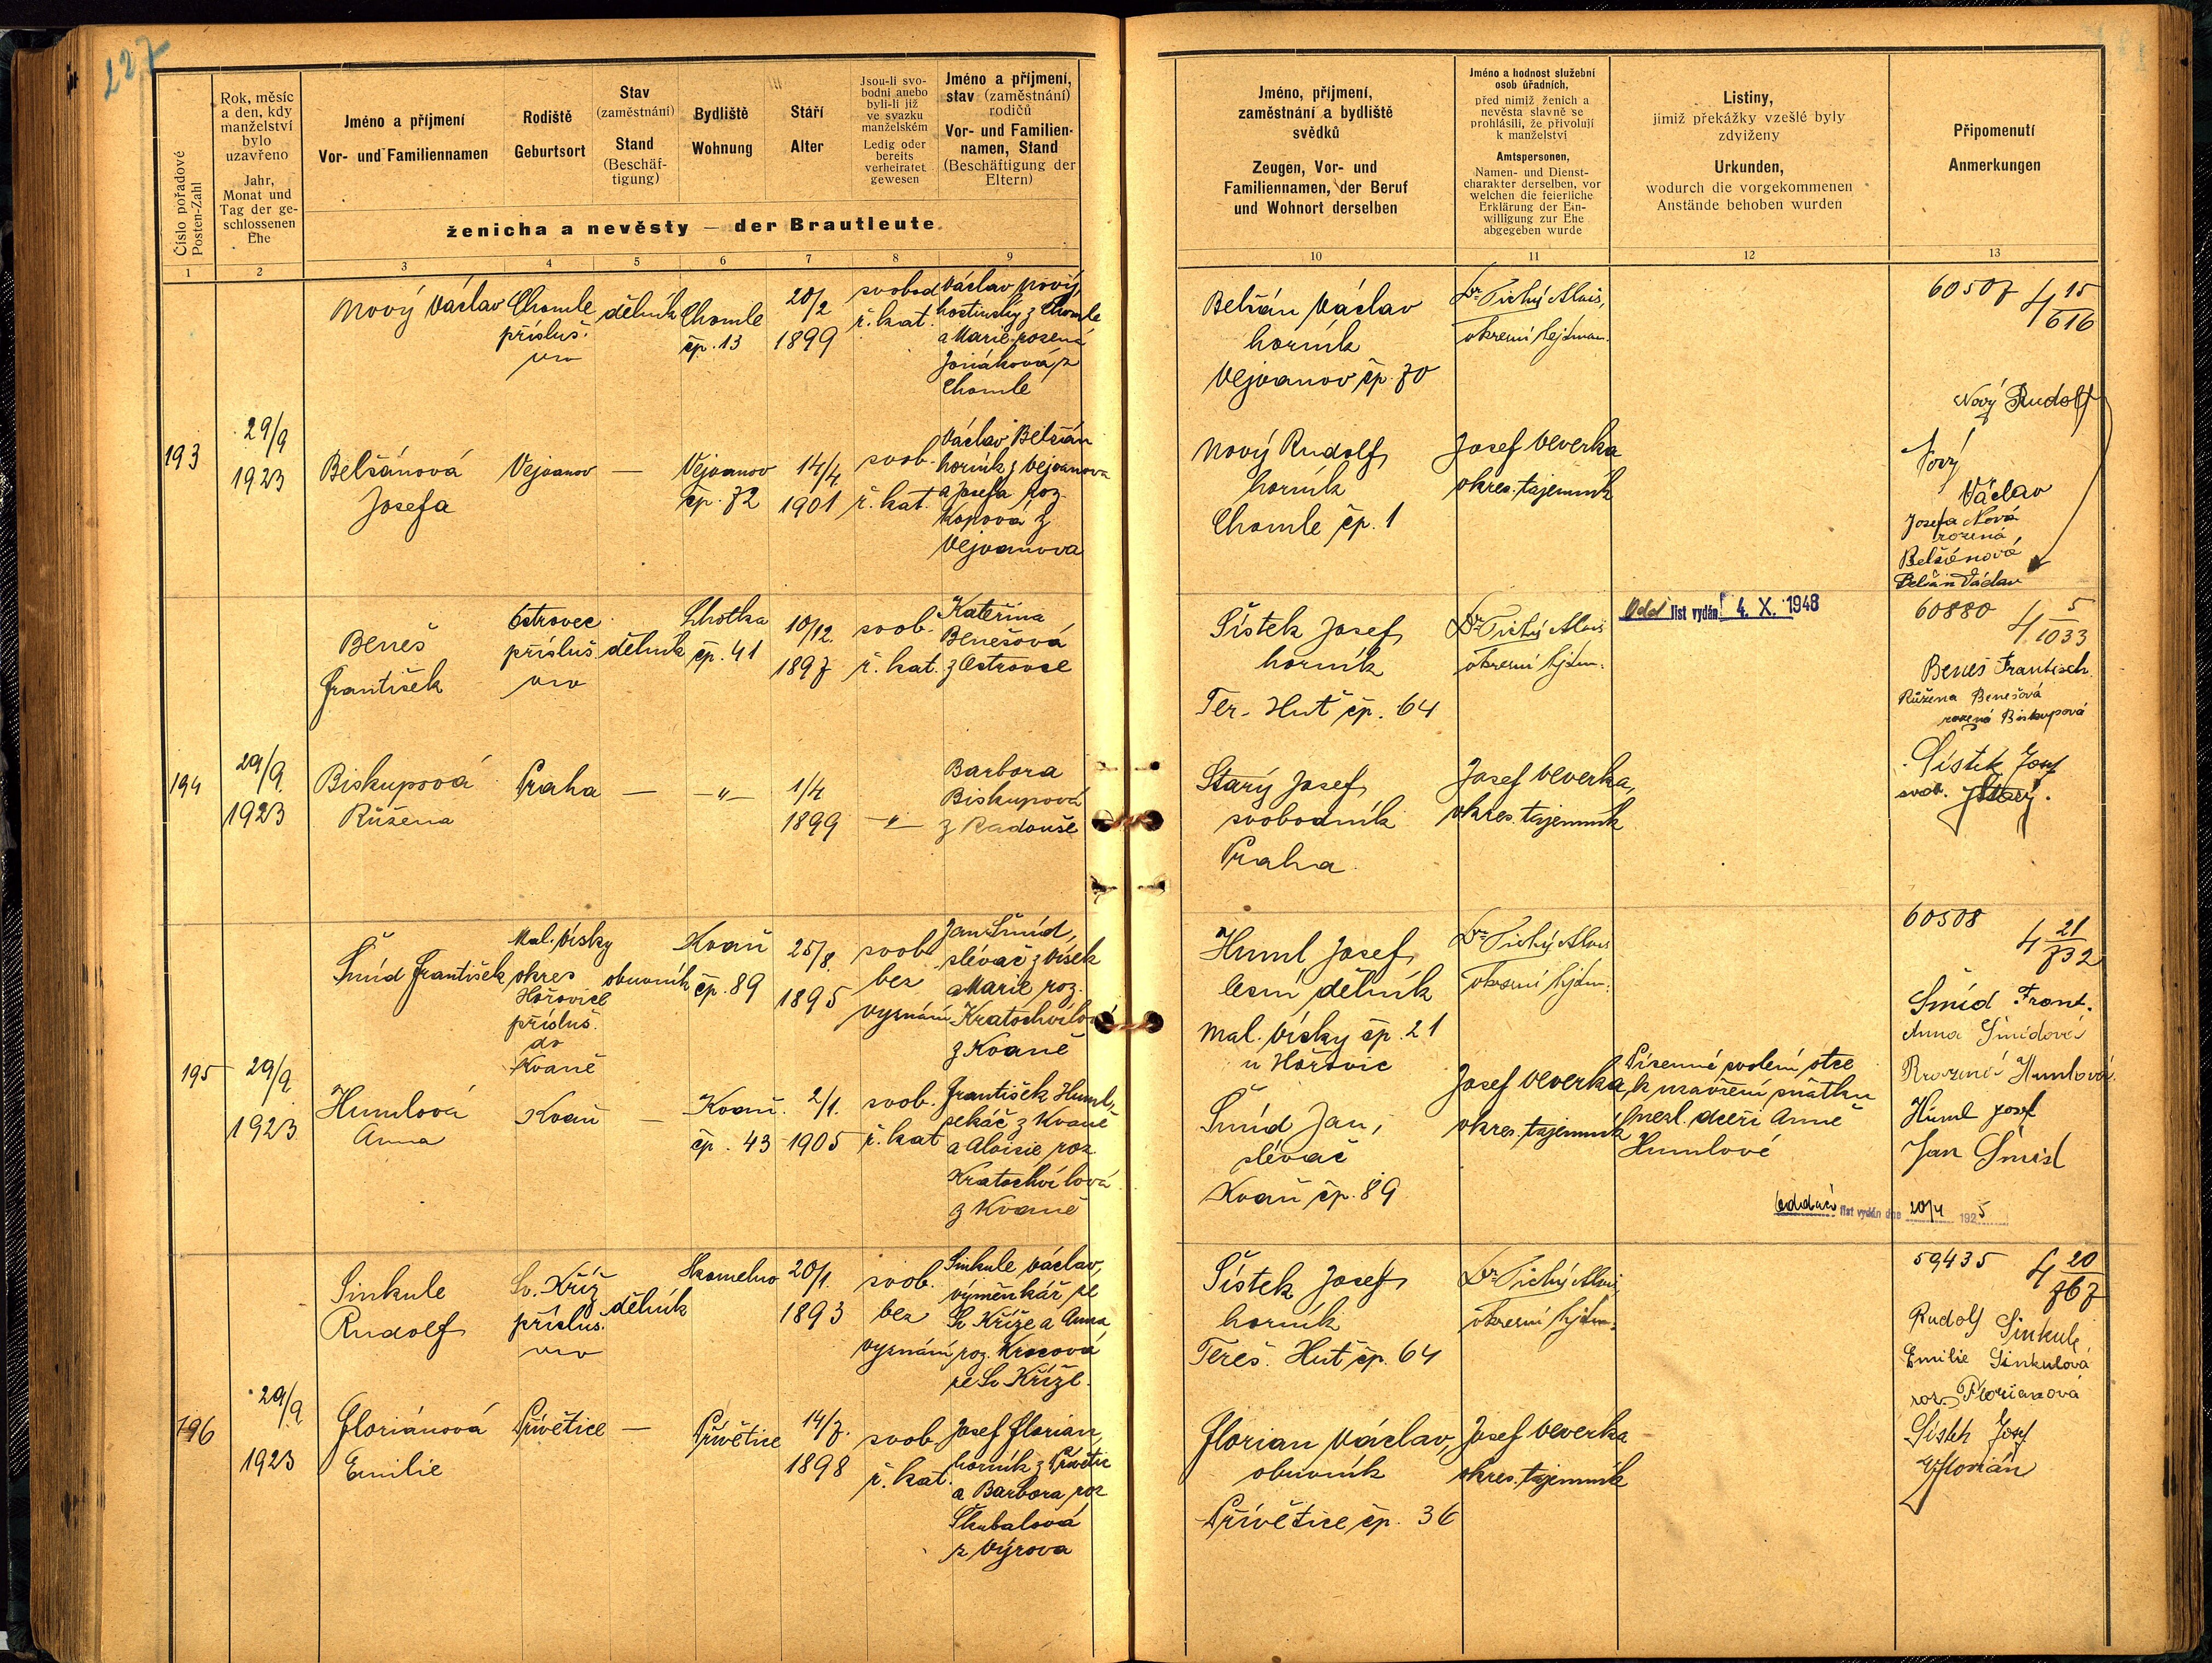 227
Číslo pořadové
Posten-Zahl
Rok, měsíc
a den, kdy
manželství
bylo
uzavřeno
Jahr,
Monat und
Tag der ge-
schlossenen
Ehe
Jméno a příjmení
Vor- und Familiennamen
Rodiště
Geburtsort
Stav
(zaměstnání)
Stand
(Beschäf-
tigung)
Bydliště
Wohnung
Stáří
Alter
Jsou-li svo-
bodni anebo
byli-li již
ve svazku
manželském
Ledig oder
bereits
verheiratet
gewesen
Jméno a příjmení,
stav (zaměstnání)
rodičů
Vor- und Familien-
namen, Stand
(Beschäftigung der
Eltern)
ženicha a nevěsty — der Brautleute
1 2 3 4 5 6 7 8 9
Jméno, příjmení,
zaměstnání a bydliště
svědků
Zeugen, Vor- und
Familiennamen, der Beruf
und Wohnort derselben
Jméno a hodnost služební
osob úřadních,
před nimiž ženich a
nevěsta slavně se
prohlásili, že přivolují
k manželství
Amtspersonen,
Namen- und Dienst-
charakter derselben, vor
welchen die feierliche
Erklärung der Ein-
willigung zur Ehe
abgegeben wurde
Listiny,
jimiž překážky vzešlé byly
zdviženy
Urkunden,
wodurch die vorgekommenen
Anstände behoben wurden
Připomenutí
Anmerkungen
10 11 12 13
193
29/9
1923
Nový Václav
Chomle
přísluš.
dělník
Chomle
čp. 13
20/2
1899
svobod
ř. kat.
Václav Nový,
hostinský z Chomle
a Marie rozená
z
Chomle
Belšánová
Josefa
Vejvanov
—
Vejvanov
čp. 72
14/4
1901
svob.
ř. kat.
Václav Belšán
horník z Vejvanova
a Josefa roz.
Kopová z
Vejvanova
Belšán Václav
horník
Vejvanov čp. 70
Nový Rudolf,
horník
Chomle čp. 1
Dr. Tichý Alois,
okresní hejtman.
Josef Veverka
okres. tajemník
60507 4 15/616
Nový Rudolf
Nový
Václav
Josefa Nová
rozená
Belšánová
Belšán Václav
194
29/9
1923
Beneš
František
Ostrovec
přísluš
dělník
Lhotka
čp. 41
10/12.
1897
svob.
ř. kat.
Kateřina
Benešová
z Ostrovce
Biskupová
Růžena
Praha
—
—"—
1/4
1899
—"—
Barbora
Biskupová
z Radouše
Šístek Josef,
horník
Ter. Huť čp. 64
Starý Josef,
svobodník
Praha
Dr. Tichý Alois
okresní hejtm.
Josef Veverka,
okres. tajemník
Odd list vydán 4. X. 1948
60880 4 5/1033
Beneš Frantisek
Růžena Benešová
rozená Biskupová
Šístek Josef
svob. JStarý.
195
29/9
1923
Šmíd František
Mal. Vísky
okres
Hořovice
přísluš.
do
Kvaně
obuvník
Kvaň
čp. 89
25/8.
1895
svob
bez
vyznání
Jan Šmíd,
slévač z Vísek
a Marie roz.
Kratochvílová
z Kvaně
Humlová
Anna
Kvaň
—
Kvaň.
čp. 43
2/1.
1905
svob.
ř. kat
František Huml,
pekáč z Kvaně
a Aloisie roz
Kratochvílová
z Kvaně
Huml Josef,
lesní dělník
Mal. Vísky čp. 21
u Hořovic
Šmíd Jan,
slévač
Kvaň čp. 89
Dr. Tichý Alois
okresní hejtm.
Josef Veverka,
okres. tajemník
Písemné svolení otce
k uzavření sňatku
nezl. dceři Anně
Humlové
Oddací list vydán dne 20/4 1925
60508 4 21/732
Šmíd Frant.
Anna Šmídová
Rozená Humlová
Huml Josef
Jan Šmíd
196
29/9
1923
Sinkule
Rudolf
Sv. Kříž
přísluš.
dělník
Skomelno
20/1.
1893
svob.
bez
vyznání
Sinkule Václav,
výměnkář ze
Sv. Kříže a Anna
roz. Krocová
ze Sv. Kříže.
Floriánová
Emilie
Přívětice
—
Přívětice
14/7.
1898
svob
ř. kat.
Josef Florian,
horník z Přívětic
a Barbora roz
Škubalová
z Výrova
Šístek Josef,
horník
Tereš. Huť čp. 64
Florian Václav,
obuvník
Přívětice čp. 36
Dr. Tichý Alois,
okresní hejtm.
Josef Veverka
okres. tajemník
59435 4 20/767
Rudolf Sinkule
Emilie Sinkulová
roz. Florianová
Šístek Josef
VFlorián